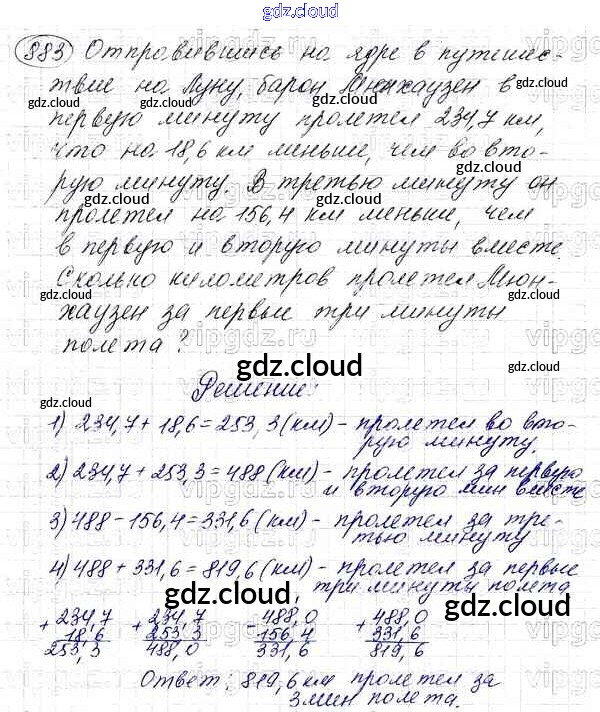 gdz.cloud
883 Отправившись на ядре в путешес-
твие на Луну, барон Мюнхаузен в
первую минуту пролетел 234,7 км,
что на 18,6 км меньше, чем во вто-
рую минуту. В третью минуту он
пролетел на 156,4 км меньше, чем
в первую и вторую минуты вместе.
Сколько километров пролетел Мюн-
хаузен за первые три минуты
полета?
gdz.cloud
Решение:
1) 234,7 + 18,6 = 253,3 (км) - пролетел во вто-
рую минуту
2) 234,7 + 253,3 = 488 (км) - пролетел за первую
и вторую мин вместе
3) 488 - 156,4 = 331,6 (км) - пролетел за тре-
тью минуту
4) 488 + 331,6 = 819,6 (км) - пролетел за первые
три минуты полета
+ 234,7 + 234,7 - 488,0 + 488,0
18,6 253,3 156,4 331,6
253,3 488,0 331,6 819,6
Ответ: 819,6 км пролетел за
3 мин полета.
gdz.cloud